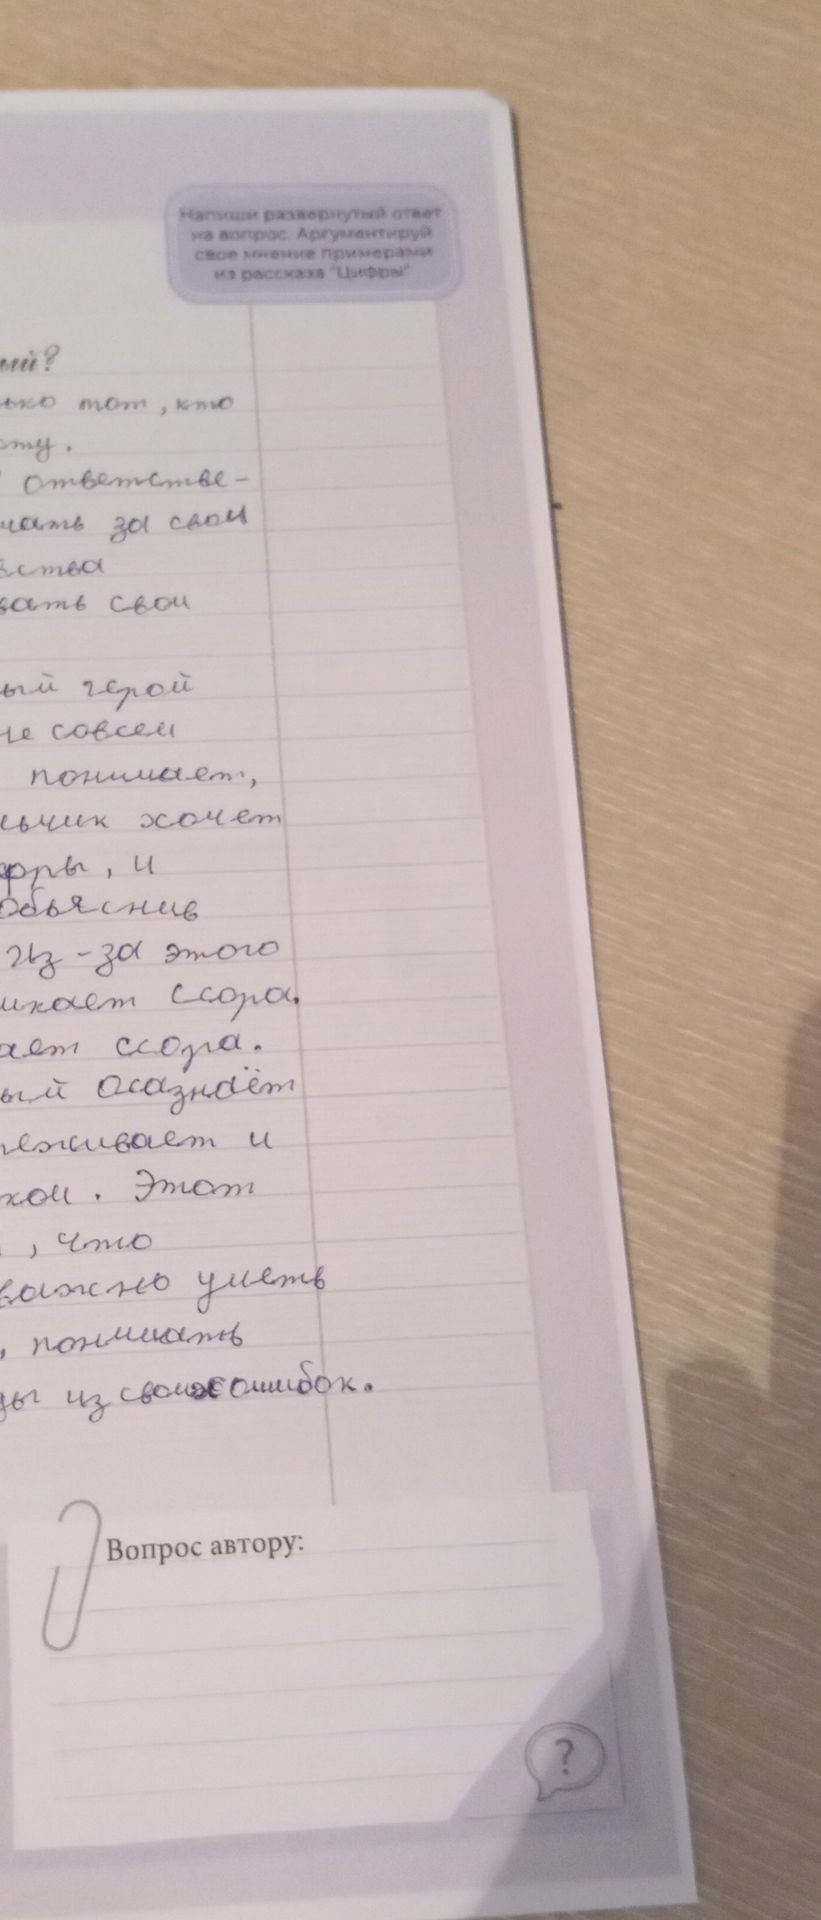 Напиши развернутый ответ
на вопрос. Аргументируй
свое мнение примерами
из рассказа "Цифры"
ый?
ько тот, кто
оту.
ответстве-
чать за свои
вства
вать свои
ый герой
не совсем
понимает,
льчик хочет
фры, и
объяснив
Из-за этого
икает ссора.
ает ссора.
ый осазнаёт
реживает и
кои. Этот
, что
важно уметь
, понимать
ды из своих ошибок.
Вопрос автору:
?